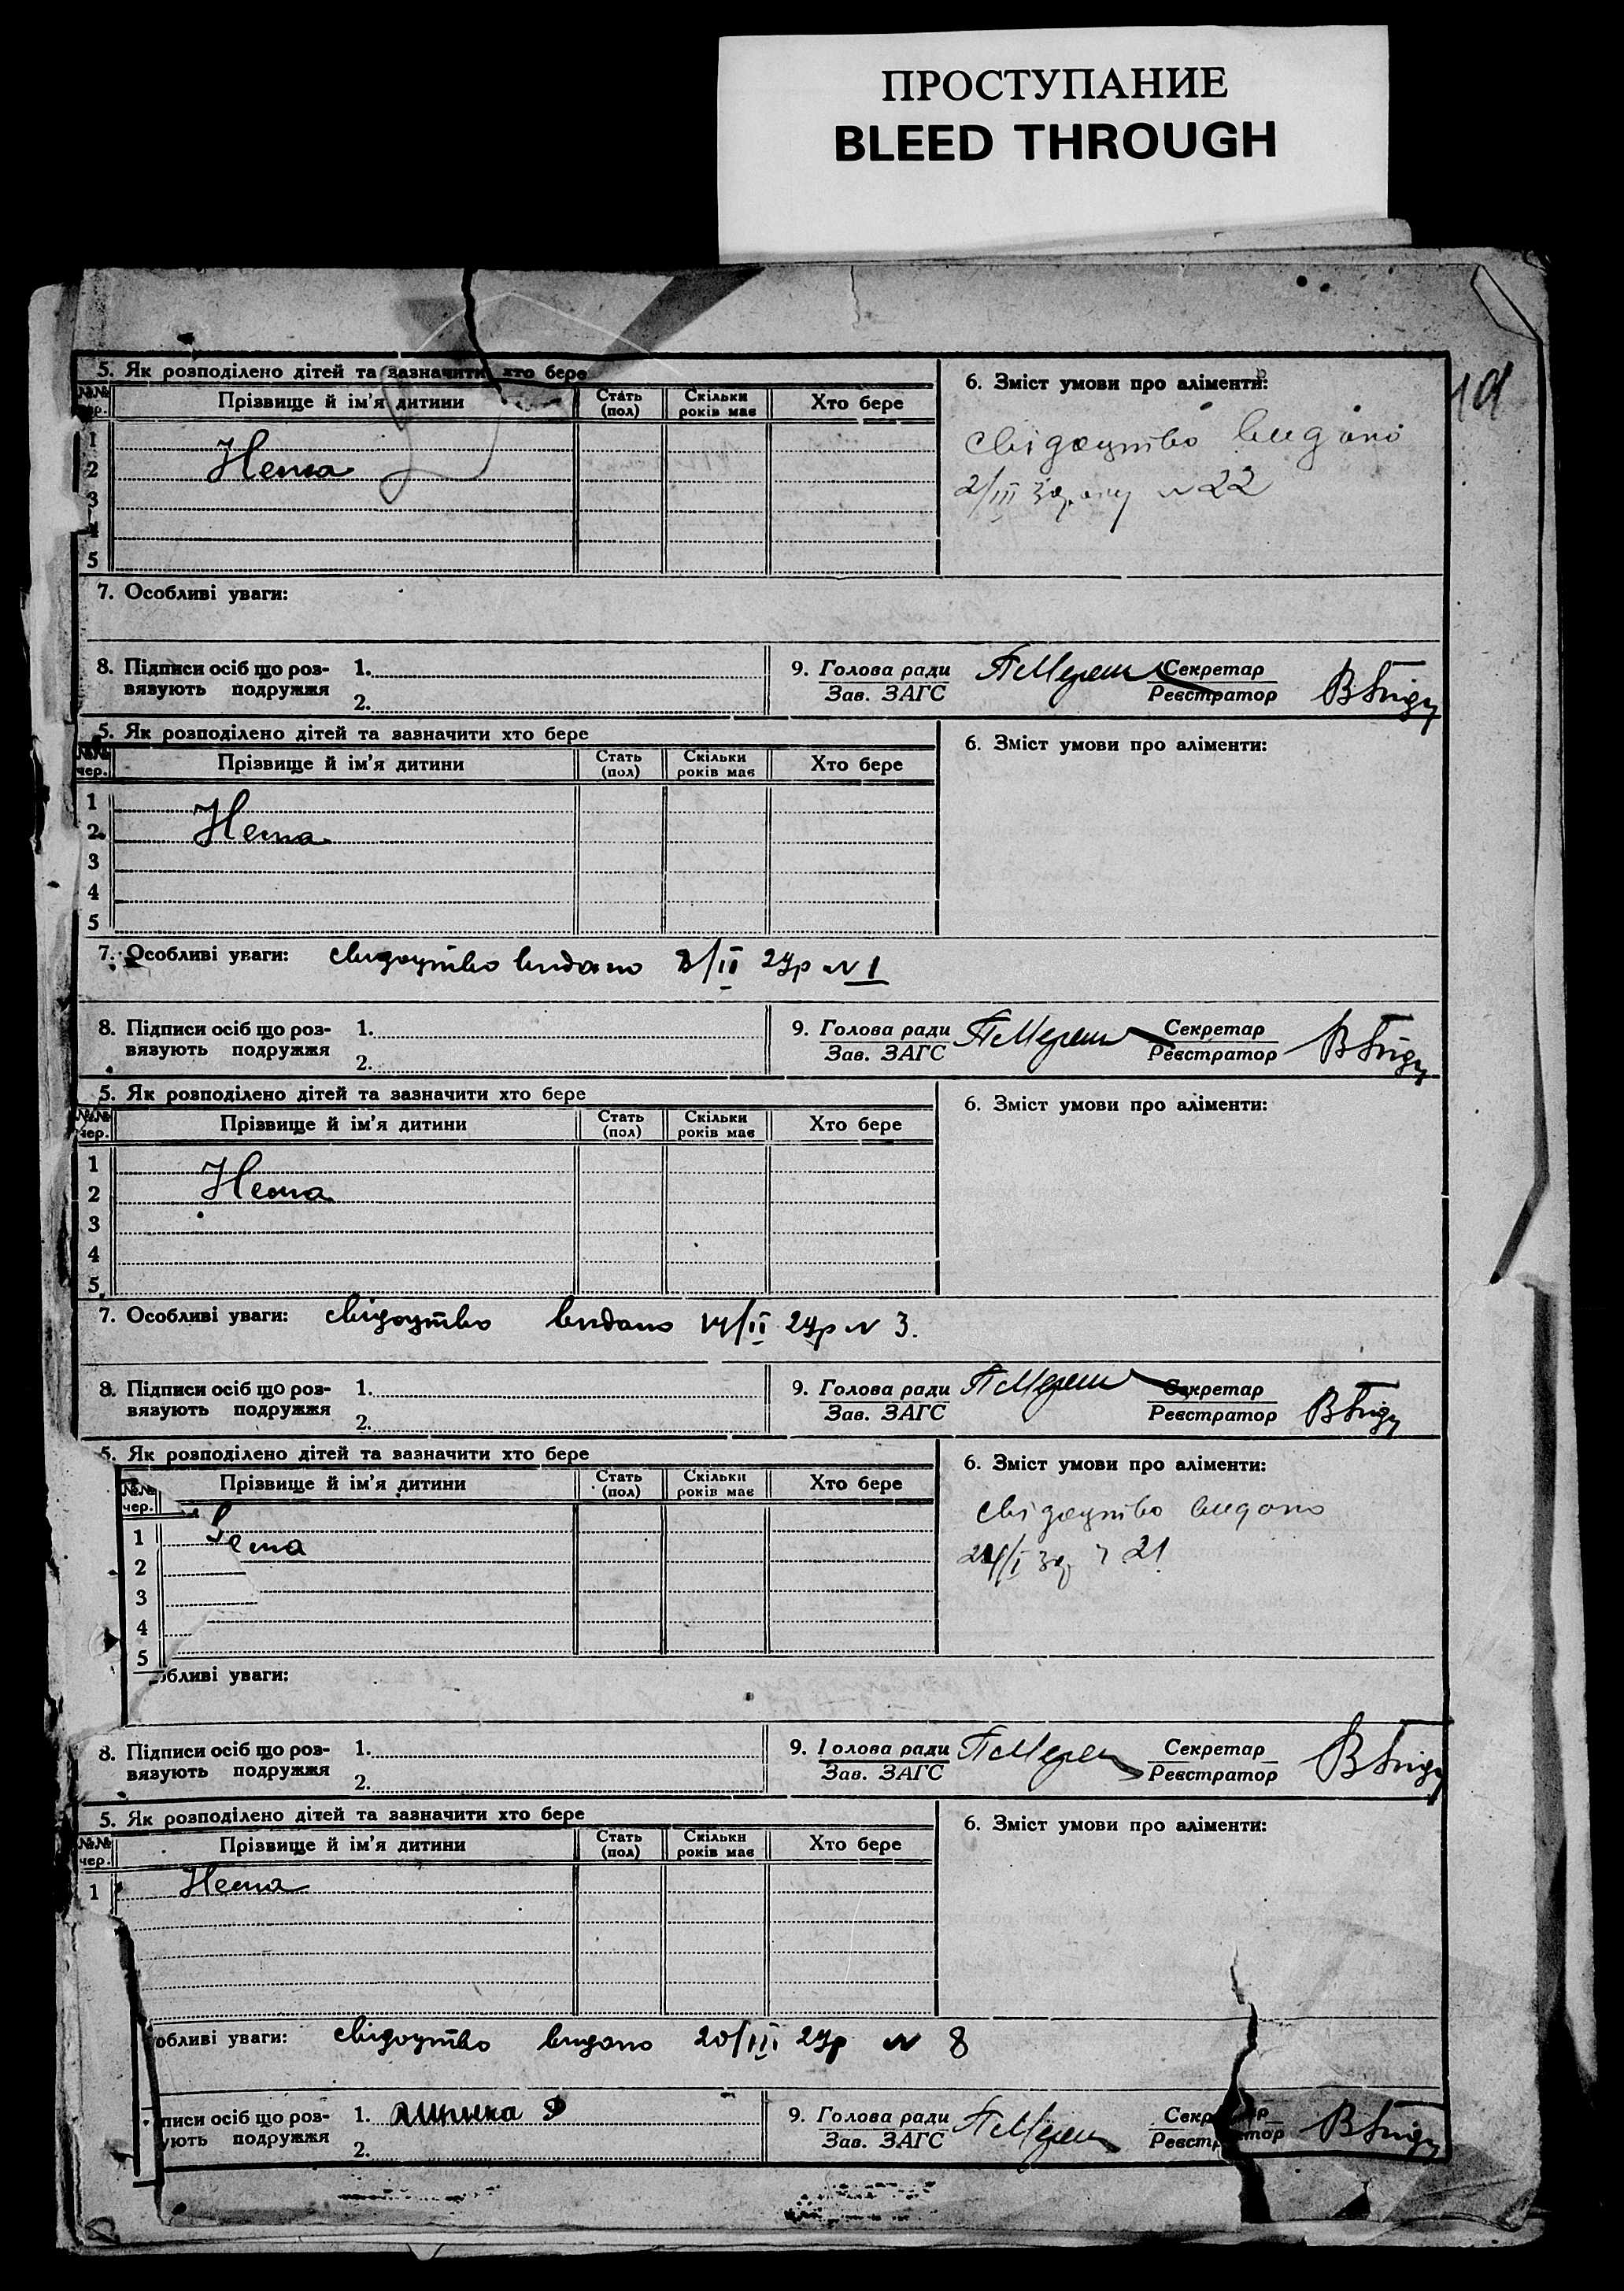 ПРОСТУПАНИЕ
BLEED THROUGH
5. Як розподілено дітей та зазначити хто бере
№№ чер. Прізвище й ім'я дитини Стать (пол) Скільки років має Хто бере
6. Зміст умови про аліменти:
свідоцтво видано
2/III № 22
1
2 Нема
3
4
5
7. Особливі уваги:
8. Підписи осіб що роз-
вязують подружжя
1.
2.
9. Голова ради
Зав. ЗАГС
Секретар
Реєстратор
5. Як розподілено дітей та зазначити хто бере
№№ чер. Прізвище й ім'я дитини Стать (пол) Скільки років має Хто бере
6. Зміст умови про аліменти:
1
2 Нема
3
4
5
7. Особливі уваги: свидоцтво видано 8/II 27р № 1
8. Підписи осіб що роз-
вязують подружжя
1.
2.
9. Голова ради
Зав. ЗАГС
Секретар
Реєстратор
5. Як розподілено дітей та зазначити хто бере
№№ чер. Прізвище й ім'я дитини Стать (пол) Скільки років має Хто бере
6. Зміст умови про аліменти:
1
2 Нема
3
4
5
7. Особливі уваги: свідоцтво видано 14/II 27р № 3.
8. Підписи осіб що роз-
вязують подружжя
1.
2.
9. Голова ради
Зав. ЗАГС
Секретар
Реєстратор
5. Як розподілено дітей та зазначити хто бере
№№ чер. Прізвище й ім'я дитини Стать (пол) Скільки років має Хто бере
6. Зміст умови про аліменти:
свідоцтво видано
24/I 21
1 ема
2
3
4
5
обливі уваги:
8. Підписи осіб що роз-
вязують подружжя
1.
2.
9. Голова ради
Зав. ЗАГС
Секретар
Реєстратор
5. Як розподілено дітей та зазначити хто бере
№№ чер. Прізвище й ім'я дитини Стать (пол) Скільки років має Хто бере
6. Зміст умови про аліменти:
1 Нема
обливі уваги: свідоцтво видано 20/III 27р № 8
писи осіб що роз-
ують подружжя
1.
2.
9. Голова ради
Зав. ЗАГС